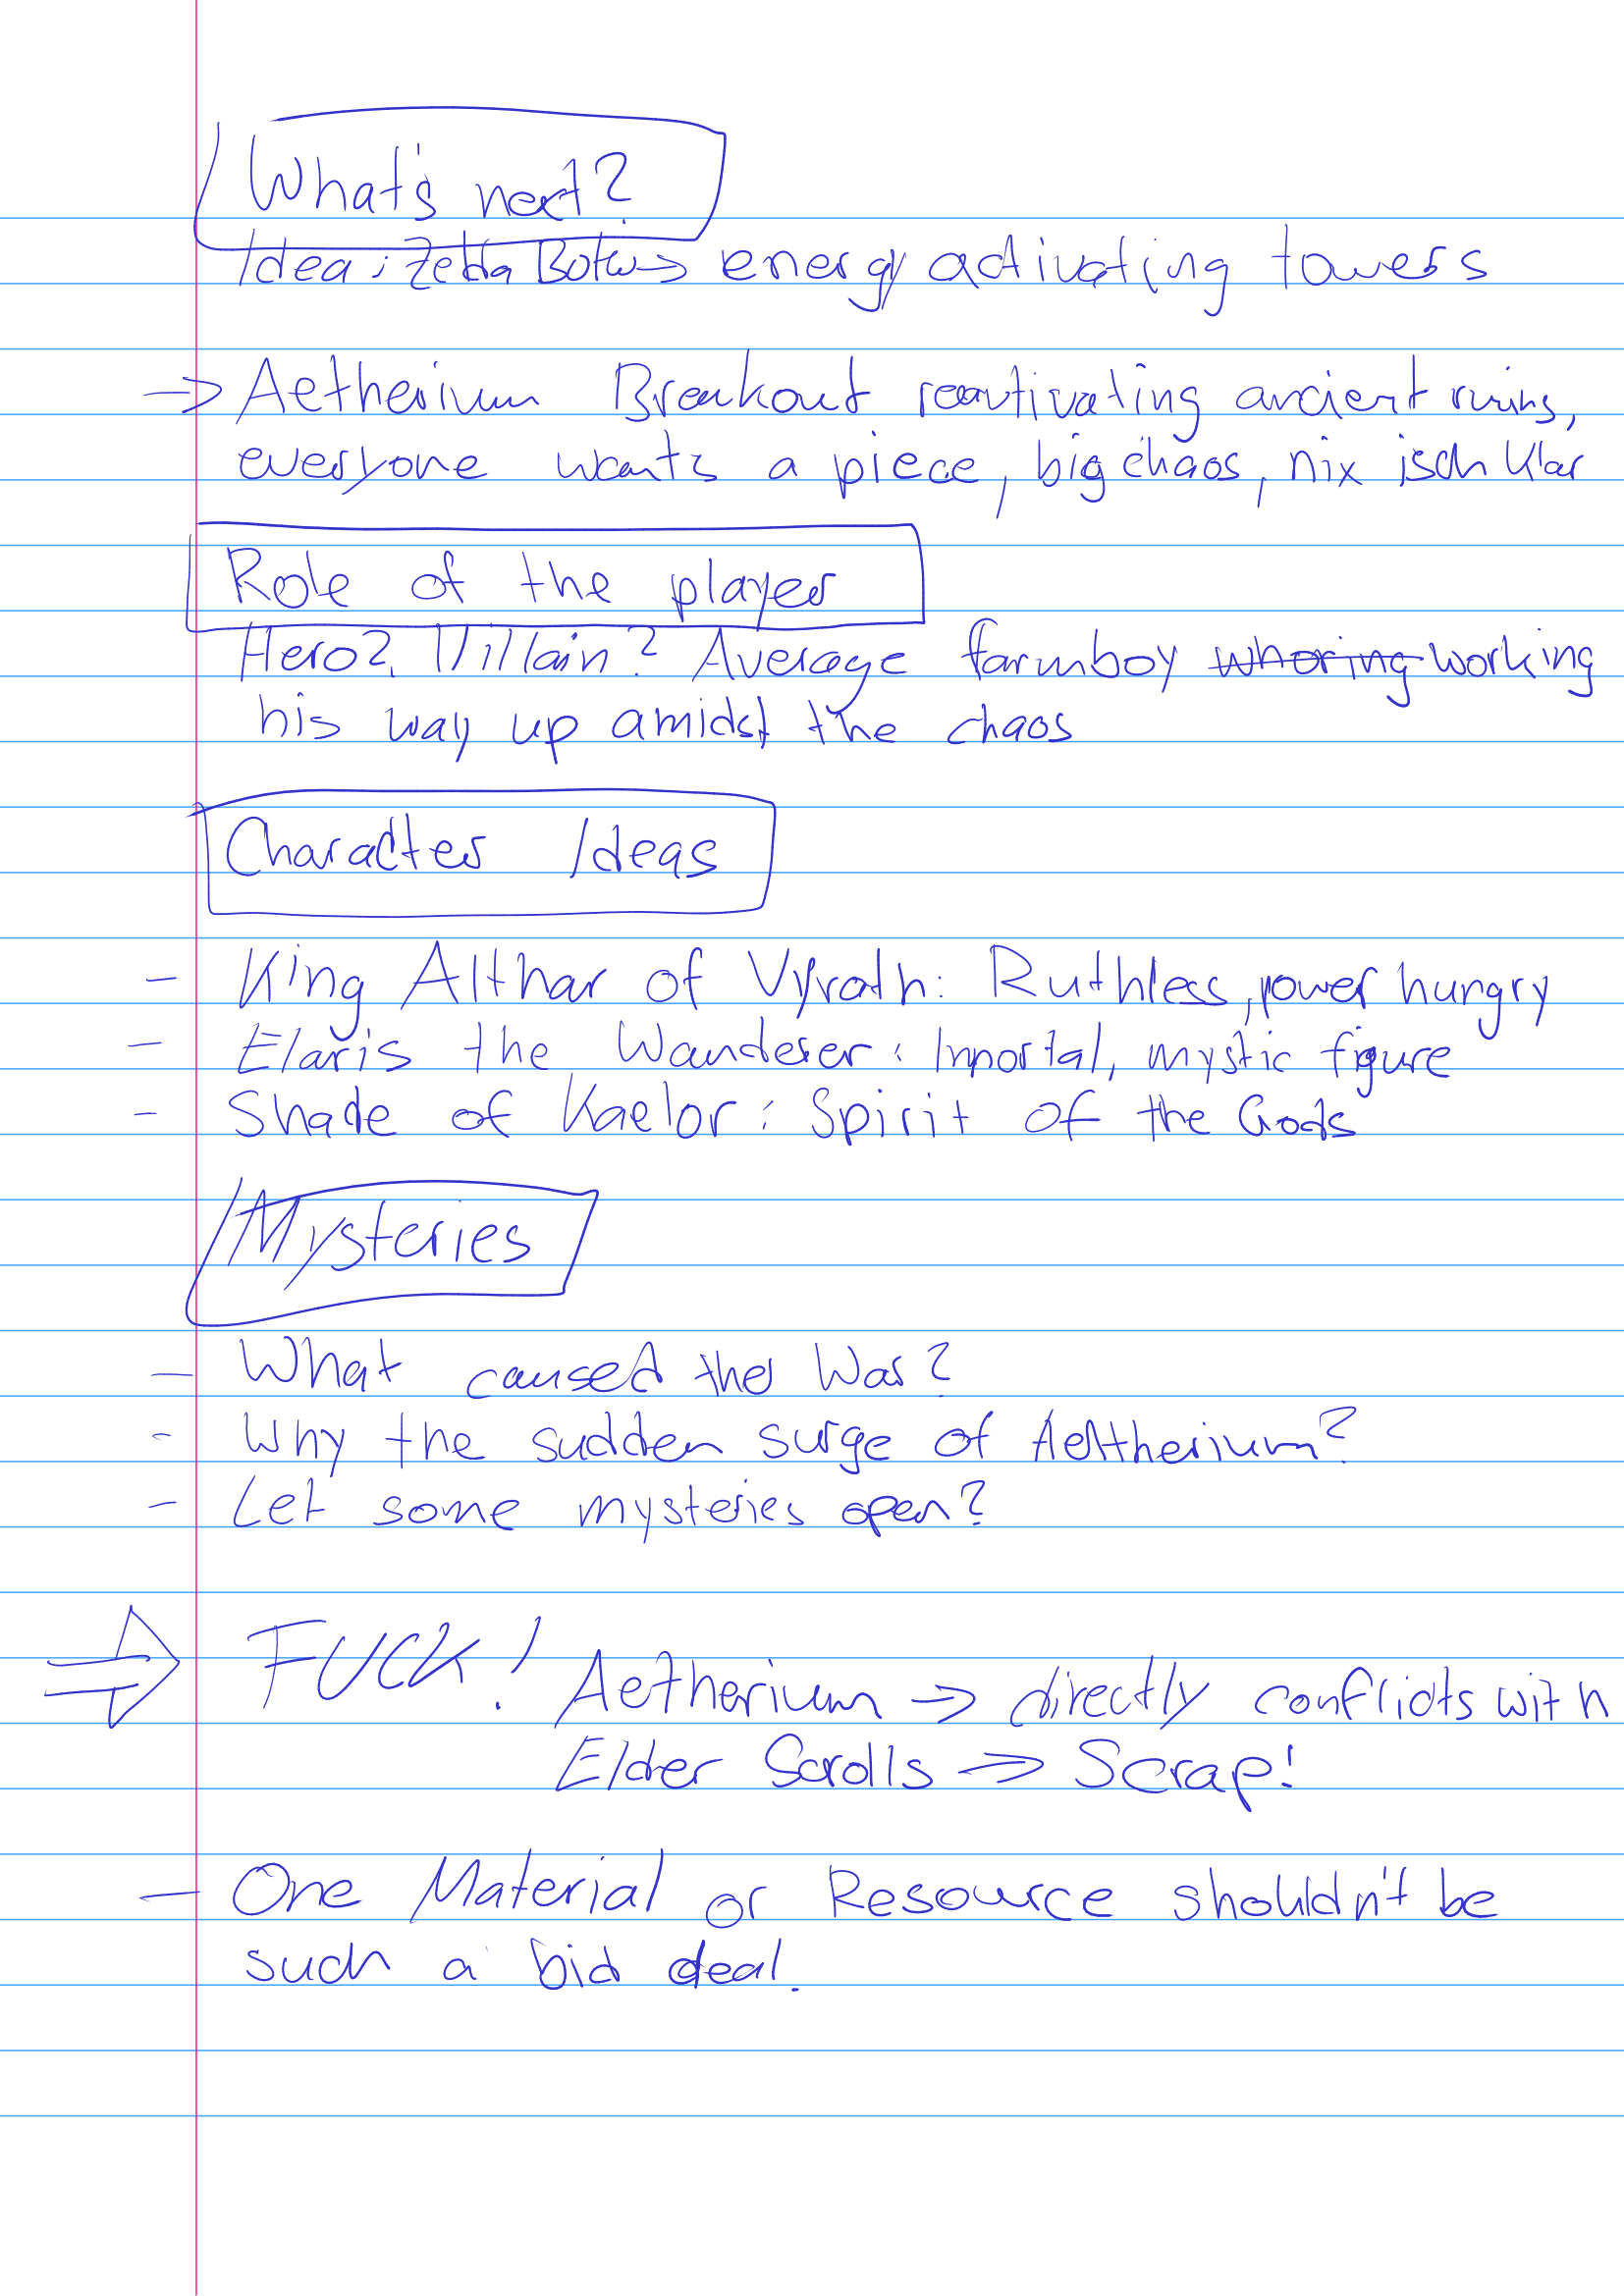 What's next?
Idea: Zelda Botw → energy activating towers
→ Aetherium Breakout reactivating ancient ruins,
everyone wants a piece, big chaos, nix isch klar
Role of the player
Hero? Villain? Average farmboy ~~whoring~~ working
his way up amidst the chaos
Character Ideas
- King Althar of Vyrath: Ruthless, power hungry
- Elaris the Wanderer: Immortal, mystic figure
- Shade of Kaelor: Spirit of the Gods
Mysteries
- What caused the War?
- Why the sudden surge of Aetherium?
- Let some mysteries open?
⇒ FUCK! Aetherium → directly conflicts with
Elder Scrolls → Scrap!
- One Material or Resource shouldn't be
such a bid deal.